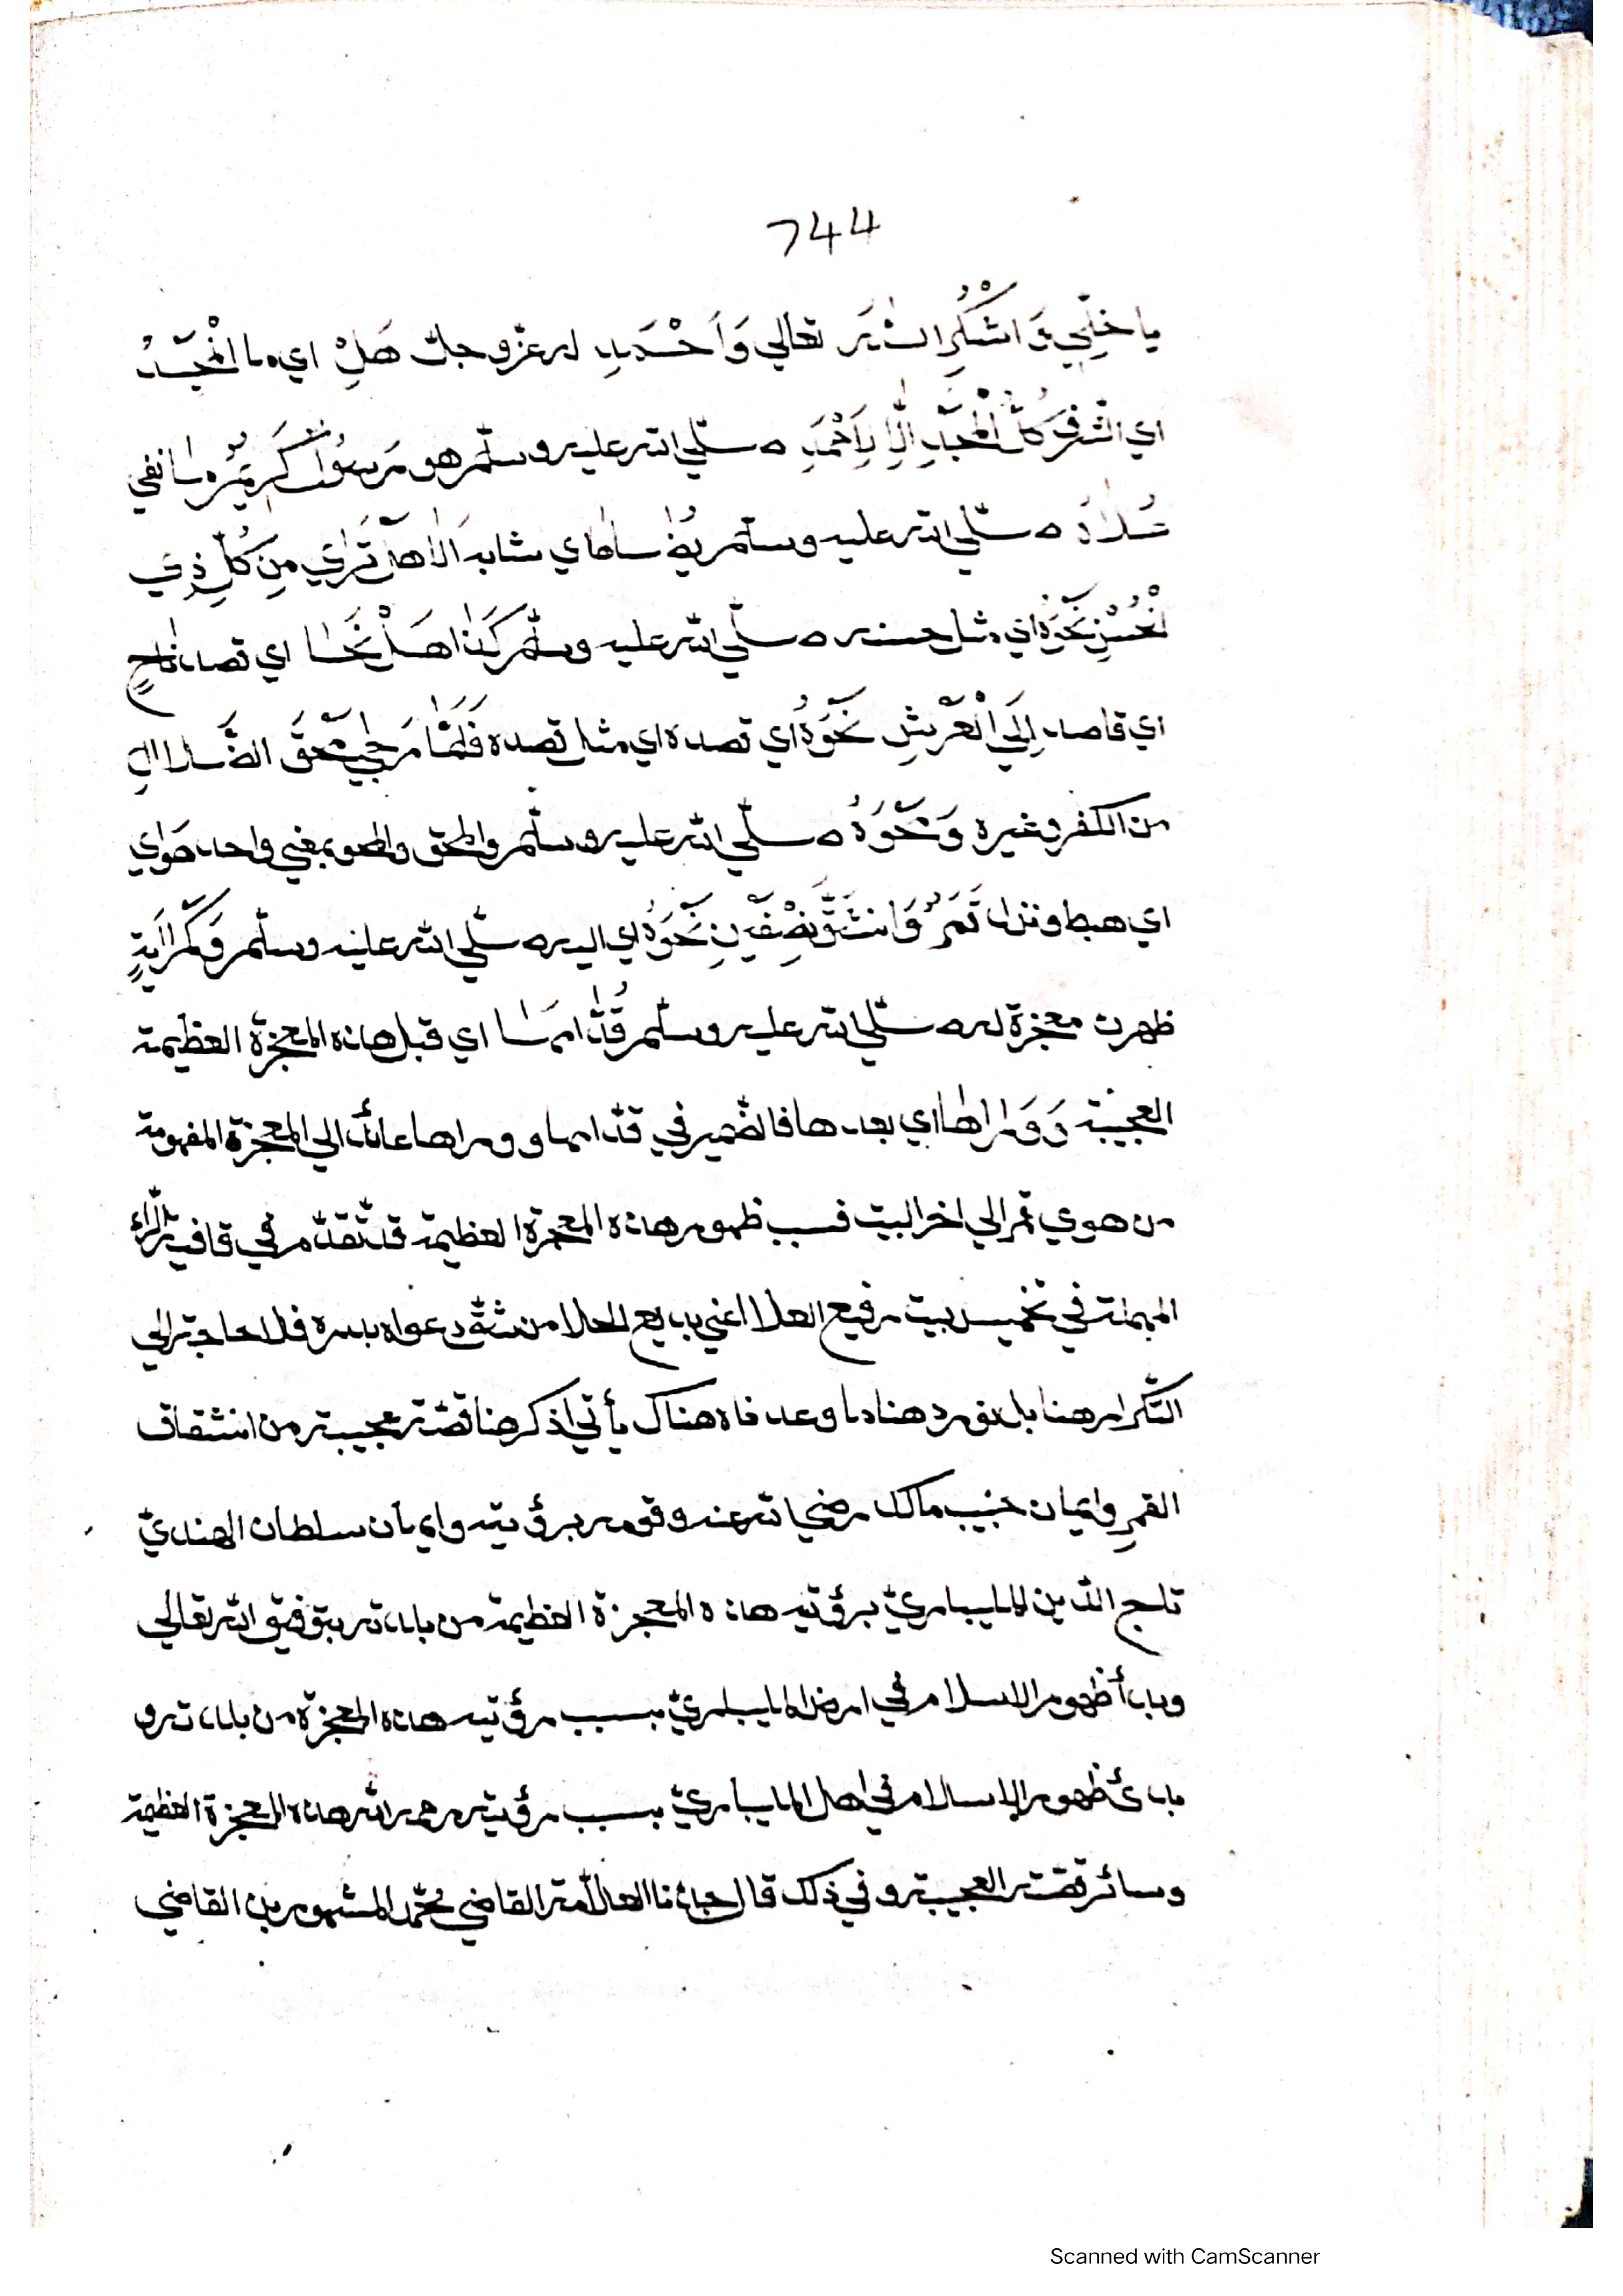 744
يا خلّي وَاشْكُرِ الله تعالي وَاَحْمَدِ له عزّ وجلّ هَلْ اي ما الْمَجْدُ
اي الشّرف كُلُّ الْمَجْدِ اِلَّا لِاَحْمَدِ صلّي الله عليه وسلّم هو رسول كريم
صلّي الله عليه وسلّم اي شابه الا هل تري مِن كُلِّ ذِي
الحُسْنِ نَحْوَهُ اي مثل حسنه صلّي الله عليه وسلّم كَذا هَلْ نَحَا اي قصد ناحٍ
اي قاصد اِلَي الْعَرْشِ نَحْوَهُ اي قصده اي مثل قصده فَلَمَّا رَجي مَحْقَ الضّلال
من الكفر وغيره وَمَحْوَهُ صلّي الله عليه وسلّم والمحق والمحو بمعني واحد هَوَاي
اي هبط ونزل قَمَرٌ وَانْشَقَّ نِصْفَيْنِ نَحْوَهُ اي اليه صلّي الله عليه وسلّم وَكَم اٰيَةٍ
ظهرت معجزة له صلّي الله عليه وسلّم قُدَّامَهَا اي قبل هذه المعجزة العظيمة
العجيبة وَوَراها اي بعدها فالضّمير في قدّامها ووراها عائد الي المعجزة المفهومة
من هوي قمر الي اخر البيت فسبب ظهور هذه المعجزة العظيمة قد تقدّم في قافية الرّاء
المهملة في تخميس بيت رفيع العلا اغني بديع الحلا من شقّ دعواه بدره فلا حاجة الي
التّكرار هنا بل نورد هنا ما وعدناه هناك يأتي اذكر هنا قصّة عجيبة من انشقاق
القمرِ وايمان حبيب مالك رضي الله عنه وقومه برؤيته وايمان سلطان الهنديّ
تاج الدّين المليباريّ برؤية هذه المعجزة العظيمة من بلدته بتوفيق الله تعالي
وبدأ ظهور الاسلام في ارض المليباريّ بسبب رؤيته هذه المعجزة من بلدته و
بدئ ظهور الإسلام في اهل المليباريّ بسبب رؤيته رحمه الله هذه المعجزة العظيمة
وسائر قصّته العجيبة وفي ذلك قال جدّنا العلّامة القاضي محمّد المشهور بن القاضي
Scanned with CamScanner